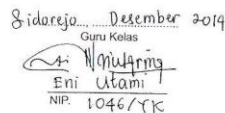 Sidorejo, Desember 2014
Guru Kelas
Eni Utami
NIP. 1046/YK